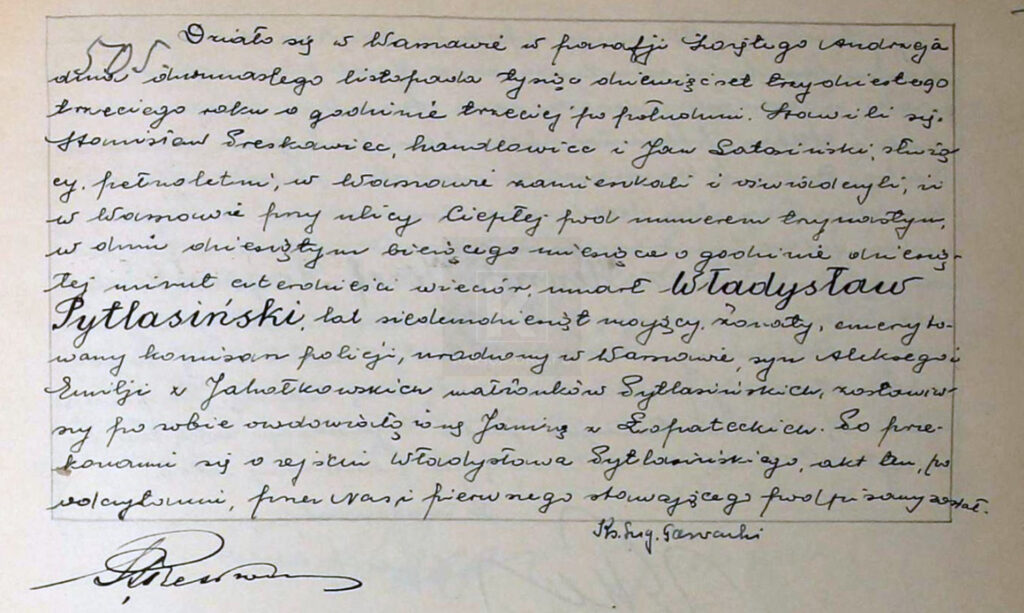 505 Działo się w Warszawie w parafji Świętego Andrzeja
dnia dwunastego listopada tysiąc dziewięćset trzydziestego
trzeciego roku o godzinie trzeciej po południu. Stawili się:
Stanisław Preskawiec, handlowiec i Jan Latosiński, służą-
cy, pełnoletni, w Warszawie zamieszkali i oświadczyli, iż
w Warszawie przy ulicy Ciepłej pod numerem trzynastym,
w dniu dziesiątym bieżącego miesiąca o godzinie dziesią-
tej minut czterdzieści wieczór, umarł Władysław
Pytlasiński, lat siedemdziesiąt mający, żonaty, emeryto-
wany komisarz policji, urodzony w Warszawie, syn Aleksego i
Emilji z Jahołkowskich małżonków Pytlasińskich, zostawiw-
szy po sobie owdowiałą żonę Janinę z Łopateckich. Po prze-
konaniu się o zejściu Władysława Pytlasińskiego, akt ten, po
odczytaniu, przez Nas i pierwszego stawającego podpisany został.
Ks. Zyg.